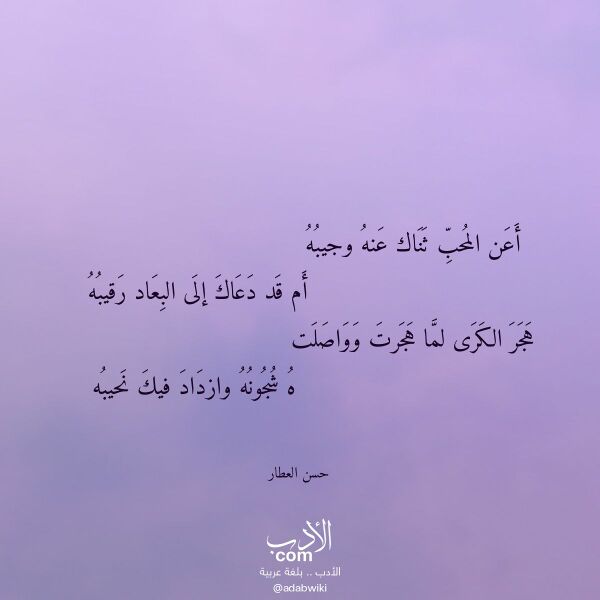 أَعَن المُحبِّ ثَنَاك عَنهُ وجيبُهُ
أَم قَد دَعَاكَ إلَى البِعَاد رَقيبُهُ
هَجَرَ الكَرَى لمَّا هَجَرتَ وَوَاصَلَت
هُ شُجُونُهُ وازدَادَ فيكَ نَحيبُه
حسن العطار
الأدب
com
الأدب .. بلغة عربية
@adabwiki